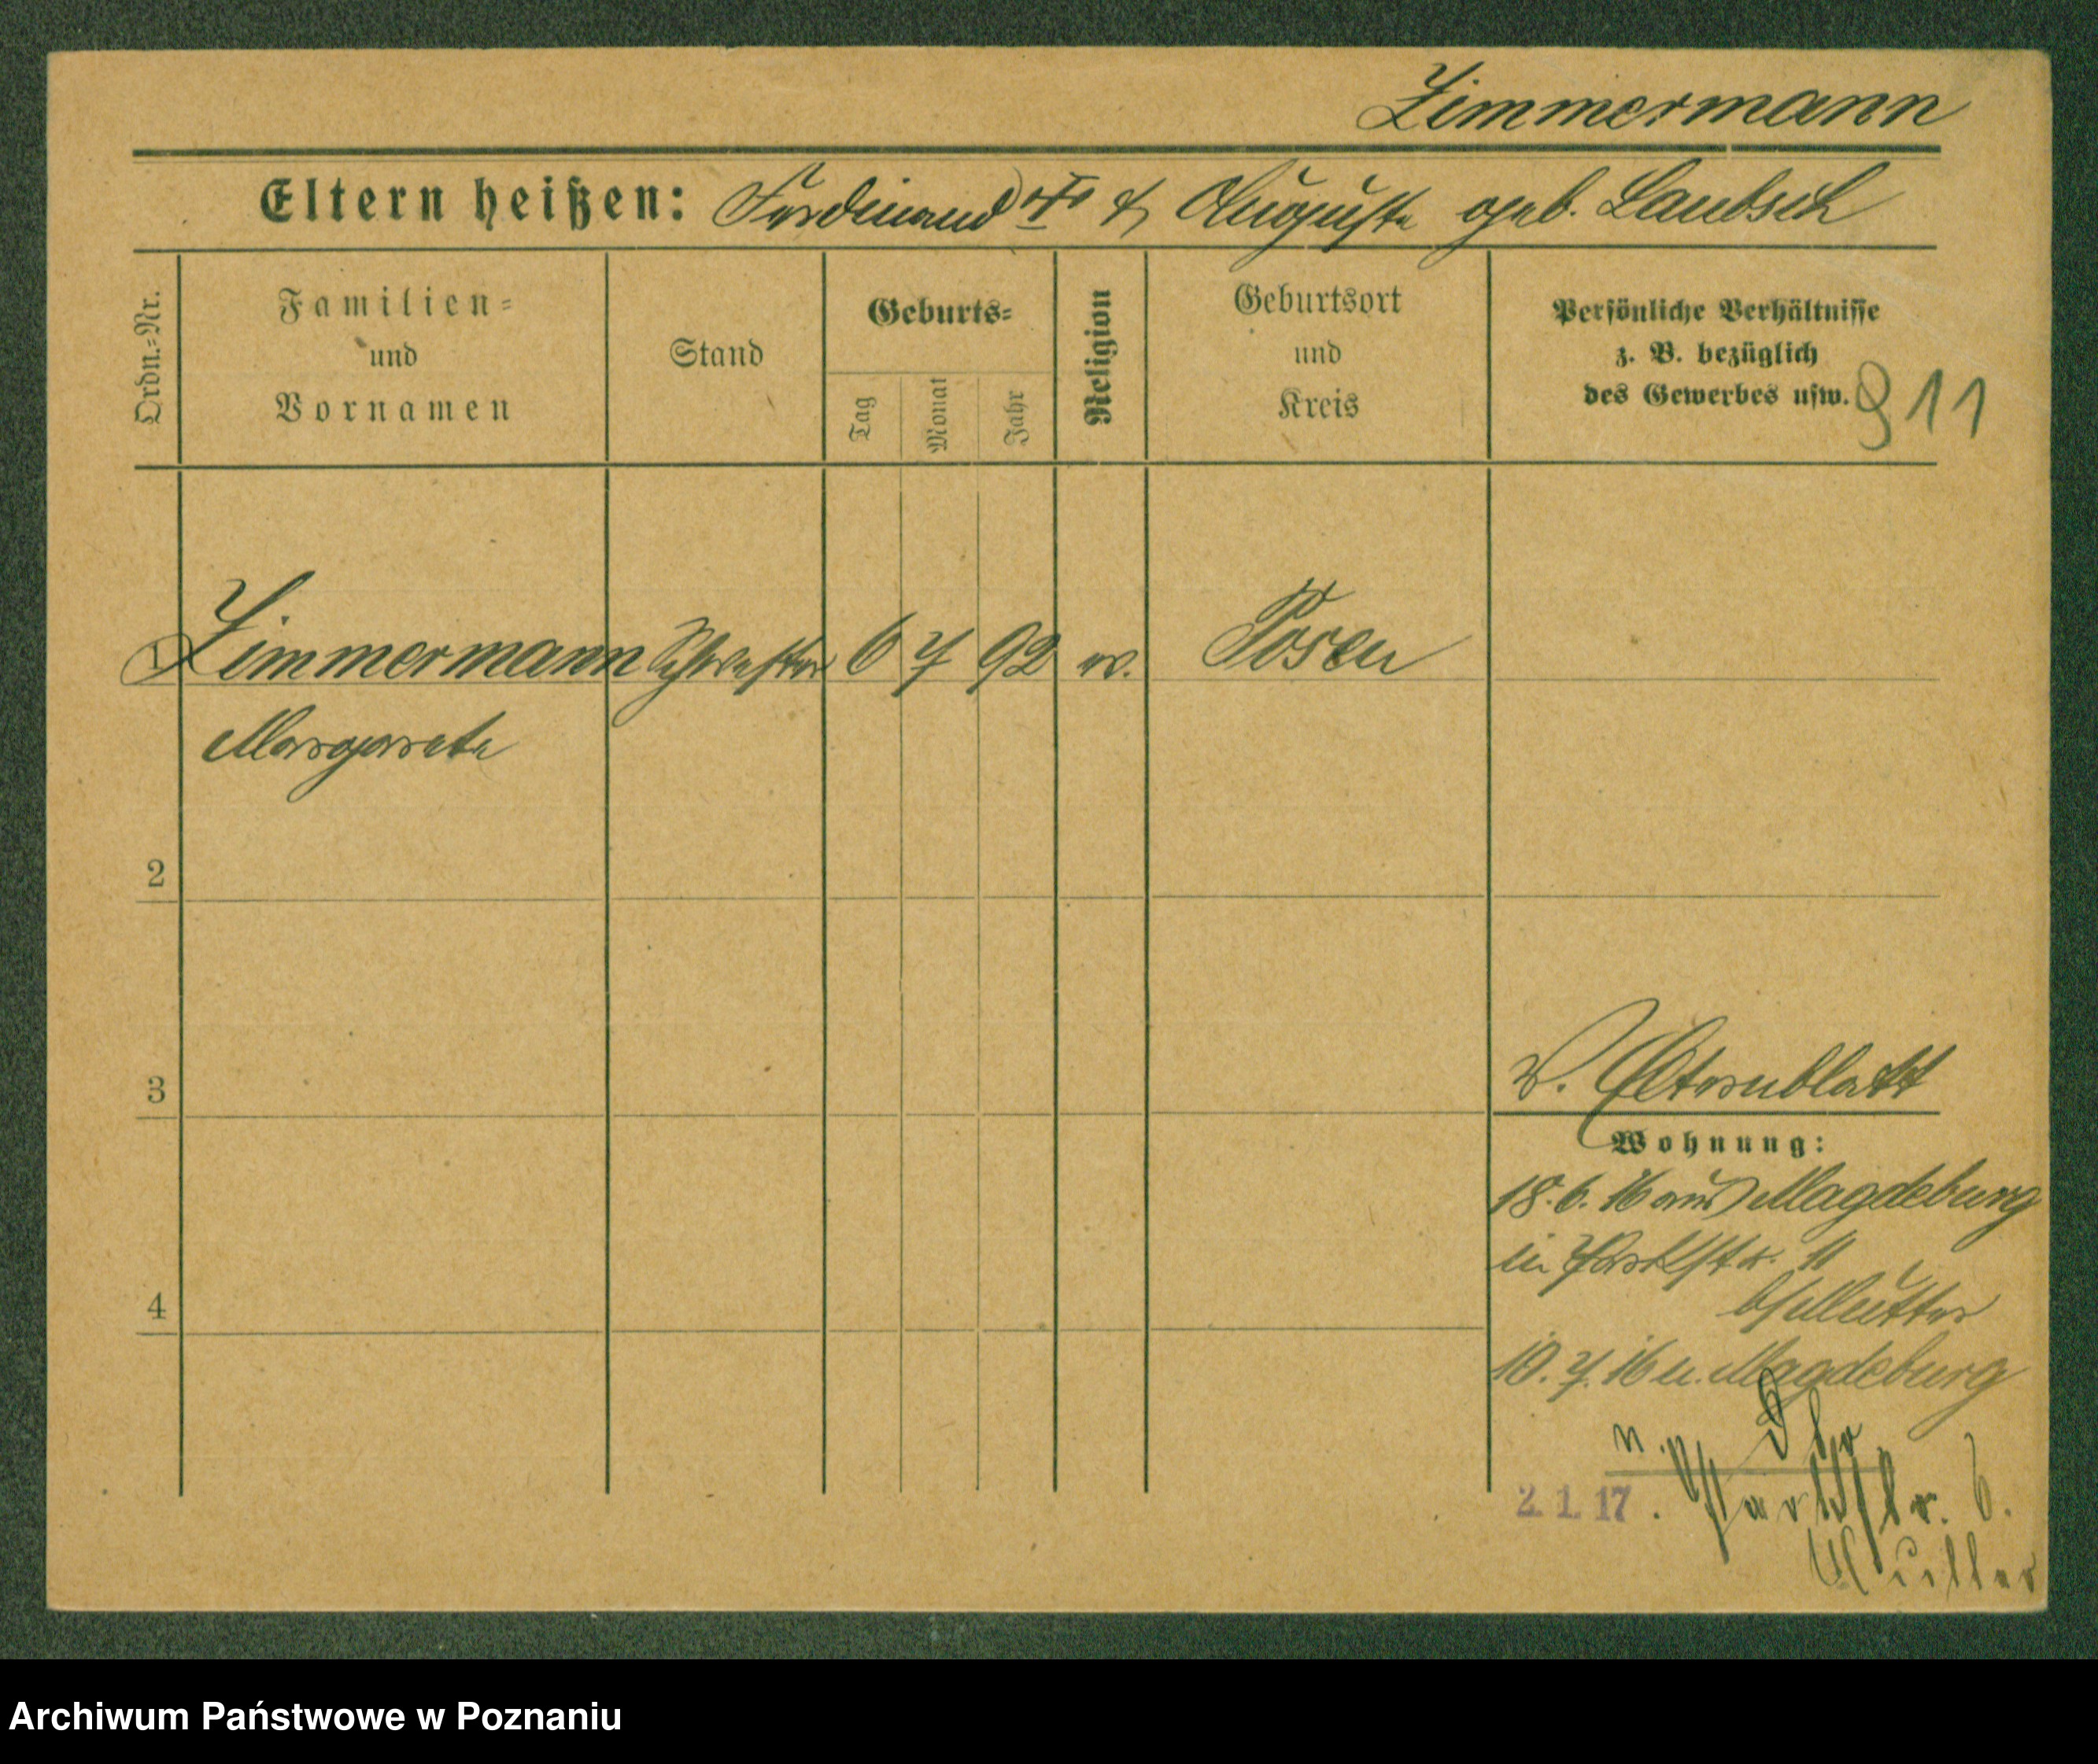 Zimmermann
Eltern heißen: Ferdinand & Auguste geb. Laubsch
Ordn.-Nr.
Familien-
und
Vornamen
Stand
Geburts-
Tag
Monat
Jahr
Religion
Geburtsort
und
Kreis
Persönliche Verhältnisse
z. B. bezüglich
des Gewerbes usw.
911
1 Zimmermann Schwester 6 7 92 ev. Posen
Margarete
2
3
v. Elternblatt
Wohnung:
18.6.16 aus Magdeburg
in Parkstr. 11
b/Mutter
4
10.7.16 n. Magdeburg
n.
2.1.17. Parkstr. 6.
Mutter
Archiwum Państwowe w Poznaniu